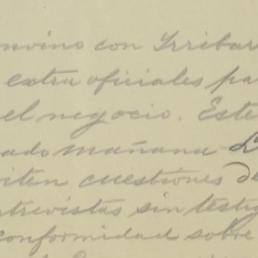 nvino con Irribar
extra oficiales pa
el negocio. Este
ado mañana
iten cuestiones de
ntrevistas sin testig
conformidad sobre